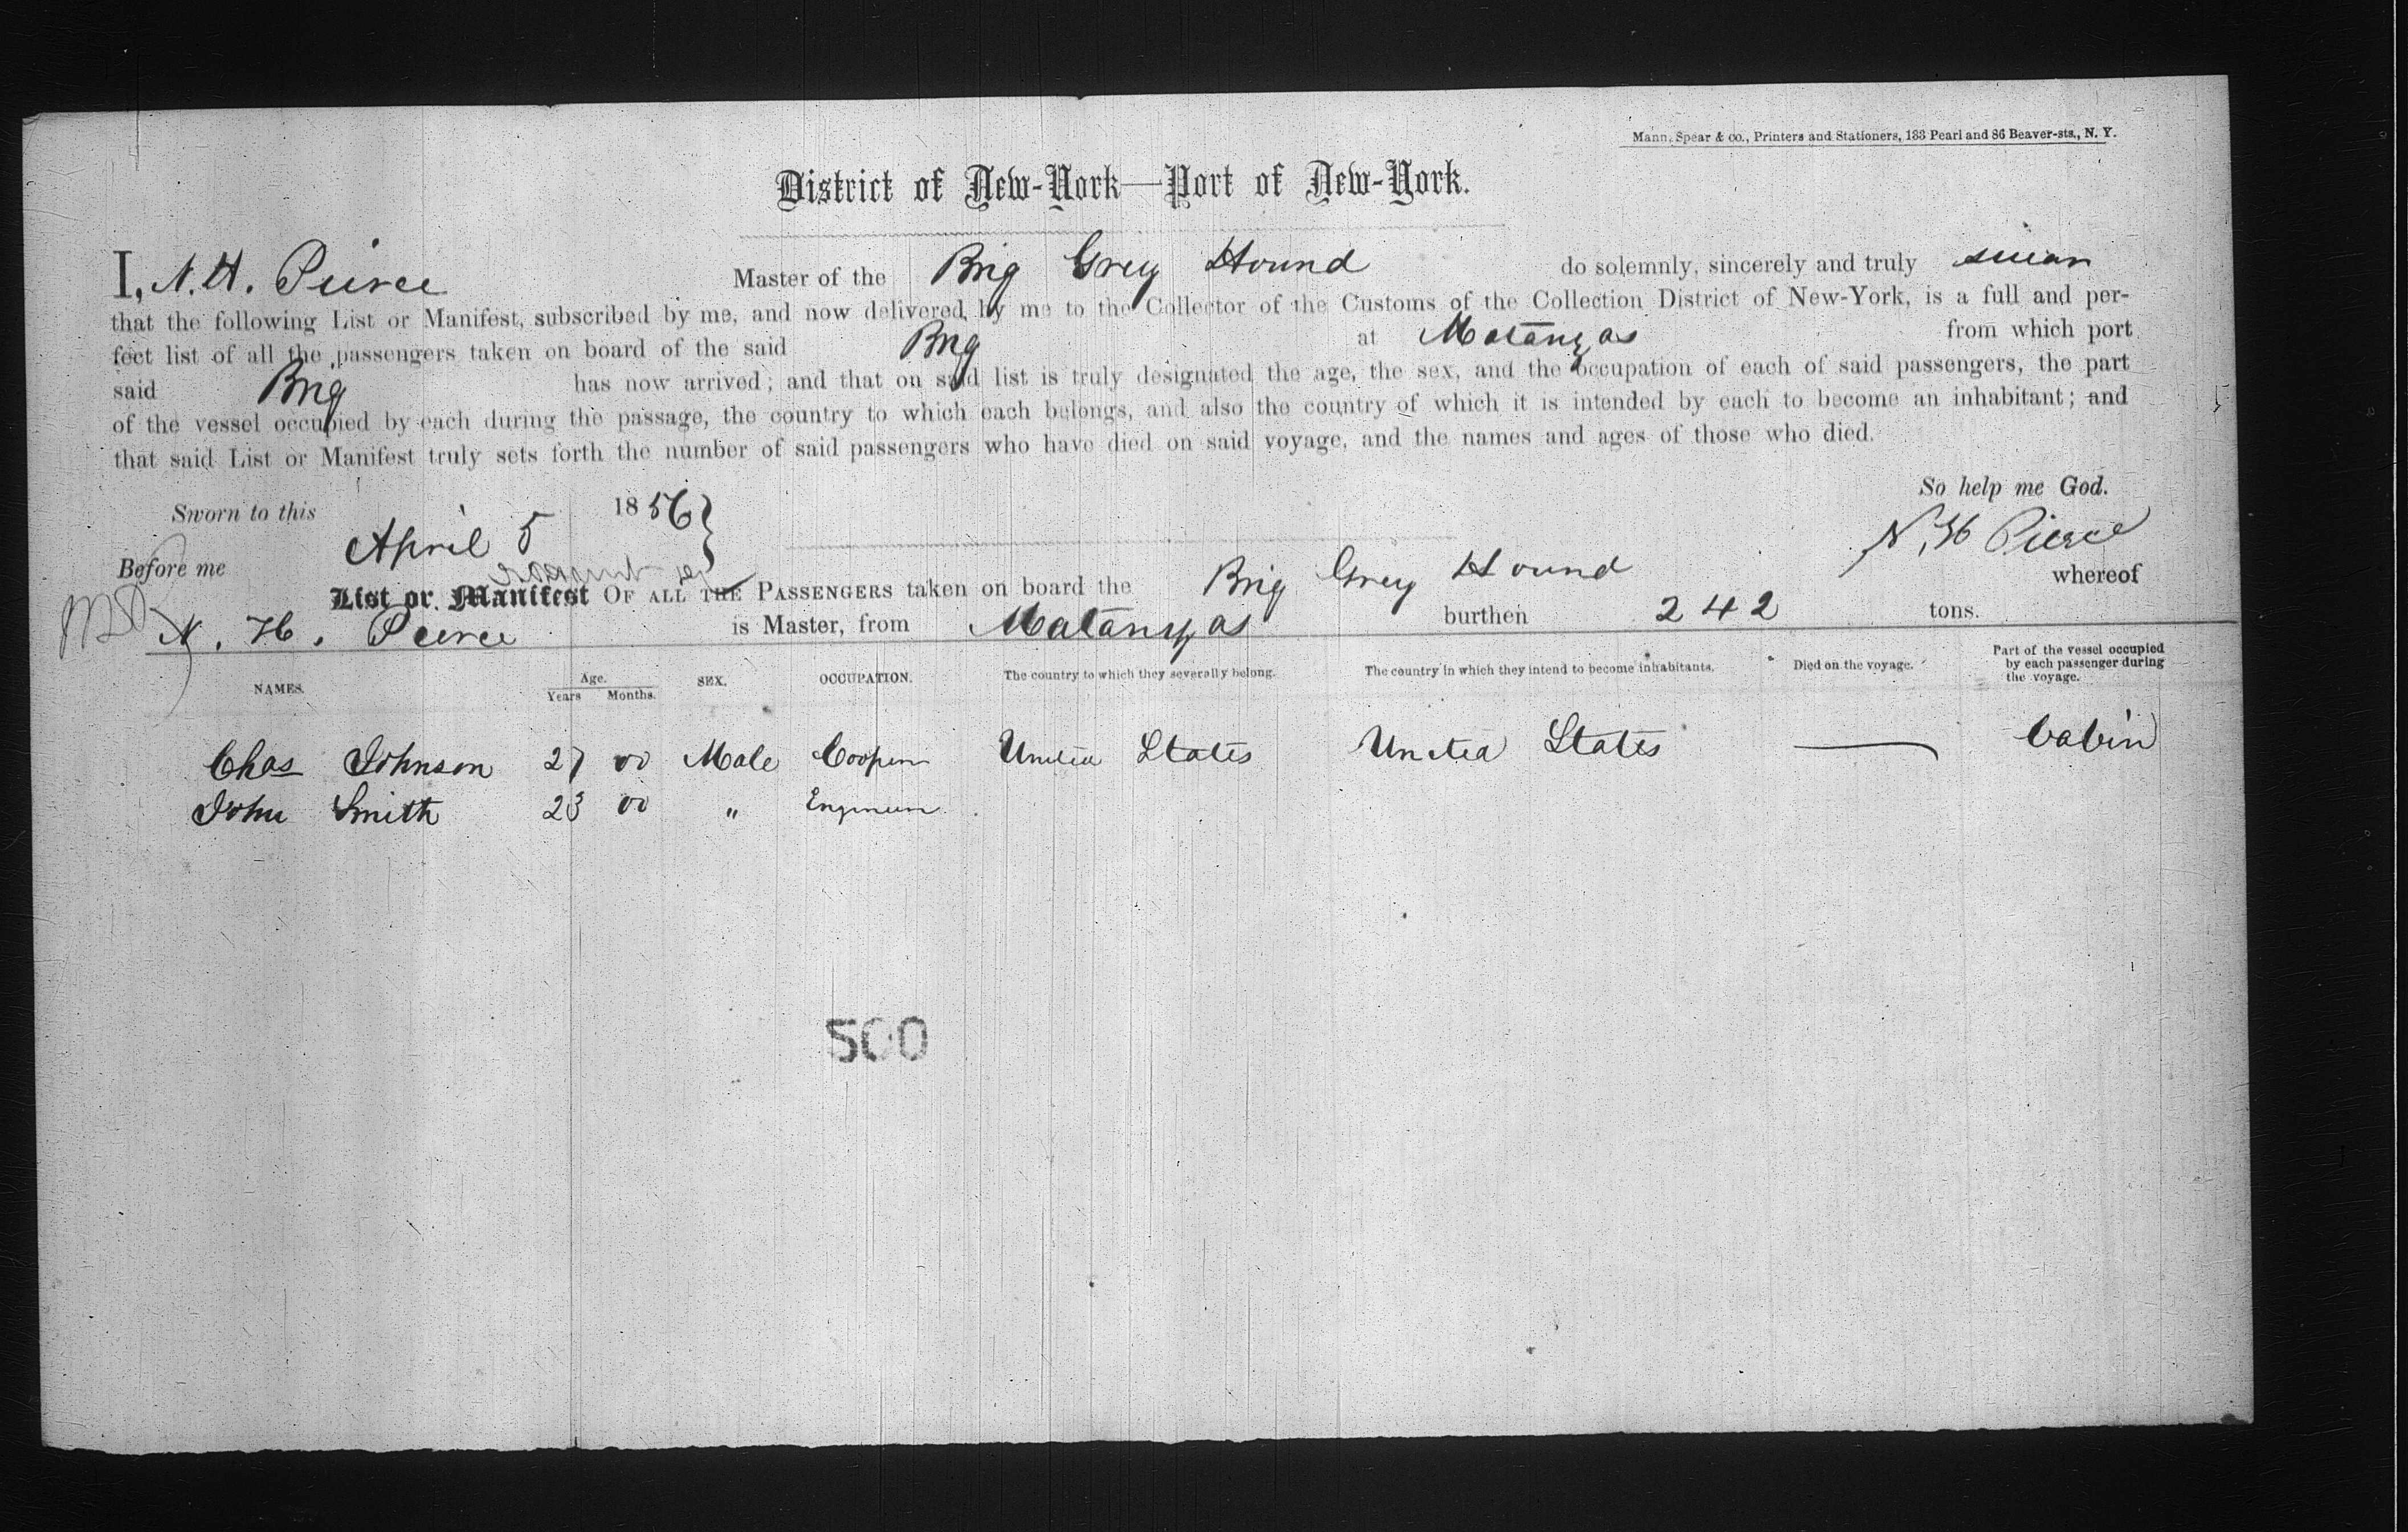 Mann, Spear & co., Printers and Stationers, 133 Pearl and 86 Beaver-sts., N. Y.
District of New-York—Port of New-York.
I, N. H. Peirce Master of the Brig Grey Hound do solemnly, sincerely and truly swear
that the following List or Manifest, subscribed by me, and now delivered by me to the Collector of the Customs of the Collection District of New-York, is a full and per-
fect list of all the passengers taken on board of the said Brig at Matanzas from which port
said Brig has now arrived; and that on said list is truly designated the age, the sex, and the occupation of each of said passengers, the part
of the vessel occupied by each during the passage, the country to which each belongs, and also the country of which it is intended by each to become an inhabitant; and
that said List or Manifest truly sets forth the number of said passengers who have died on said voyage, and the names and ages of those who died.
So help me God.
Sworn to this April 5 1856
N. H Pierce
Before me
List or Manifest OF ALL THE PASSENGERS taken on board the Brig Grey Hound whereof
N. H. Peirce is Master, from Matanzas burthen 242 tons.
NAMES. Age. Years Months. SEX. OCCUPATION. The country to which they severally belong. The country in which they intend to become inhabitants. Died on the voyage. Part of the vessel occupied by each passenger during the voyage.
Chas Johnson 27 00 Male Cooper United States United States — Cabin
John Smith 23 00 " Engineer
500